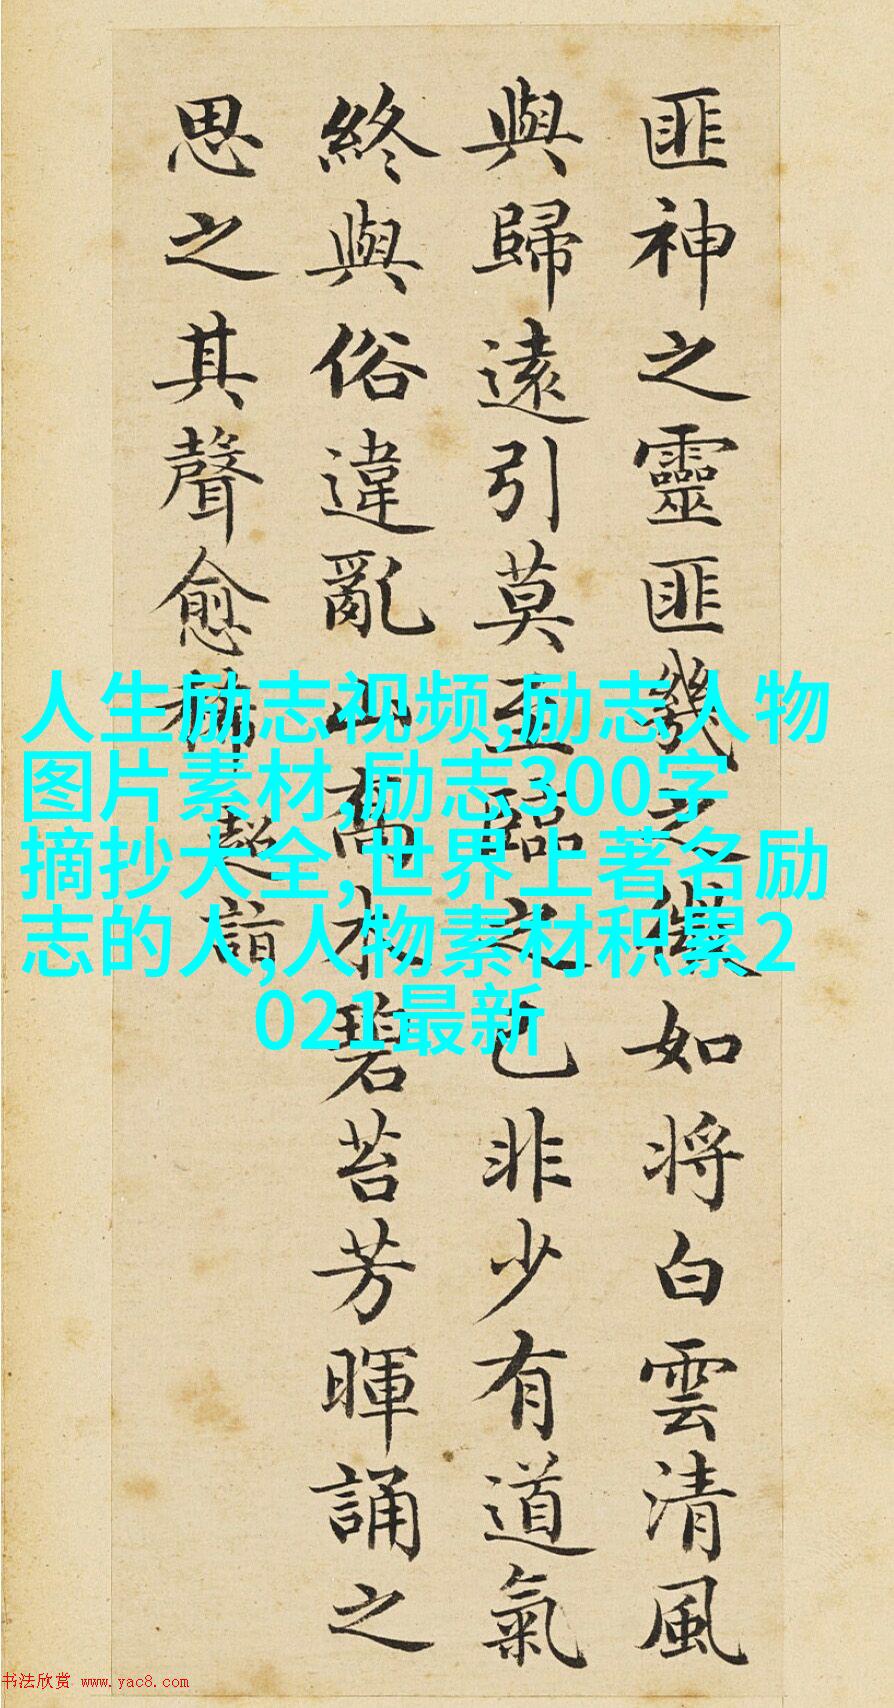 匪神之靈匪幾之微如将白雲清風
與歸遠引莫至臨之已非少有道氣
終與俗違亂山喬木碧苔芳暉誦之
思之其聲愈稀
超詣
人生励志视频,励志人物
图片素材,励志300字
摘抄大全,世界上著名励
志的人,人物素材积累2
021最新
书法欣赏 www.yac8.com